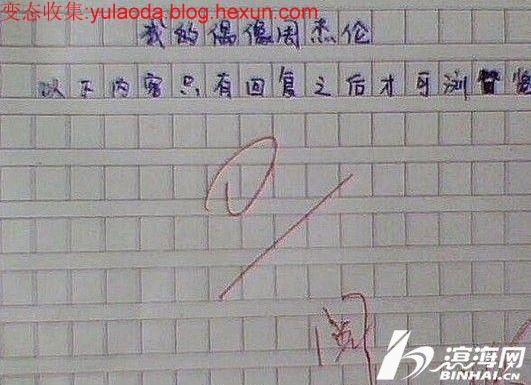 变态收集:yulaoda.blog.hexun.com
我的偶像周杰伦
以下内容只有回复之后才可浏览
0
阅
滨海网
BINHAI.CN